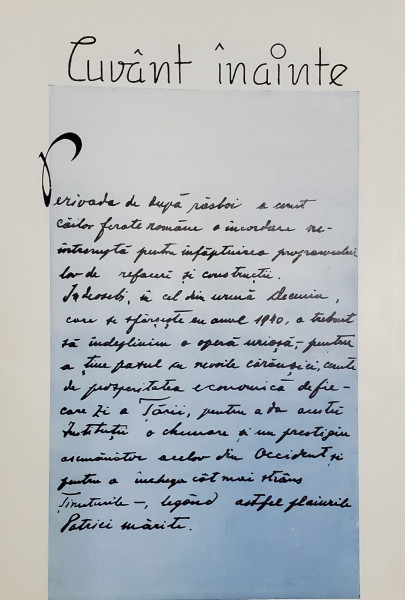 Cuvânt înainte
Perioada de după răsboi a cerut
căilor ferate române o încordare ne-
întreruptă pentru înfăptuirea programului
lor de refaceri și construcții.
Îndeosebi, în cel din urmă Deceniu,
care se sfârșește cu anul 1940, a trebuit
să îndeplinim o operă uriașă,- pentru
a ține pasul cu nevoile cărăușiei, cerute
de prosperitatea economică de fie-
care zi a Țării, pentru a da acestei
Instituții o chemare și un prestigiu
asemănător acelor din Occident și
pentru a închega cât mai strâns
Ținuturile -, legând astfel plaiurile
Patriei mărite.